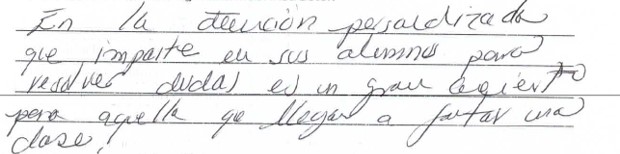 En la atención personalizada
que imparte en sus alumnos para
resolver dudas es un gran acierto
para aquella que llegan a faltar una
clase.